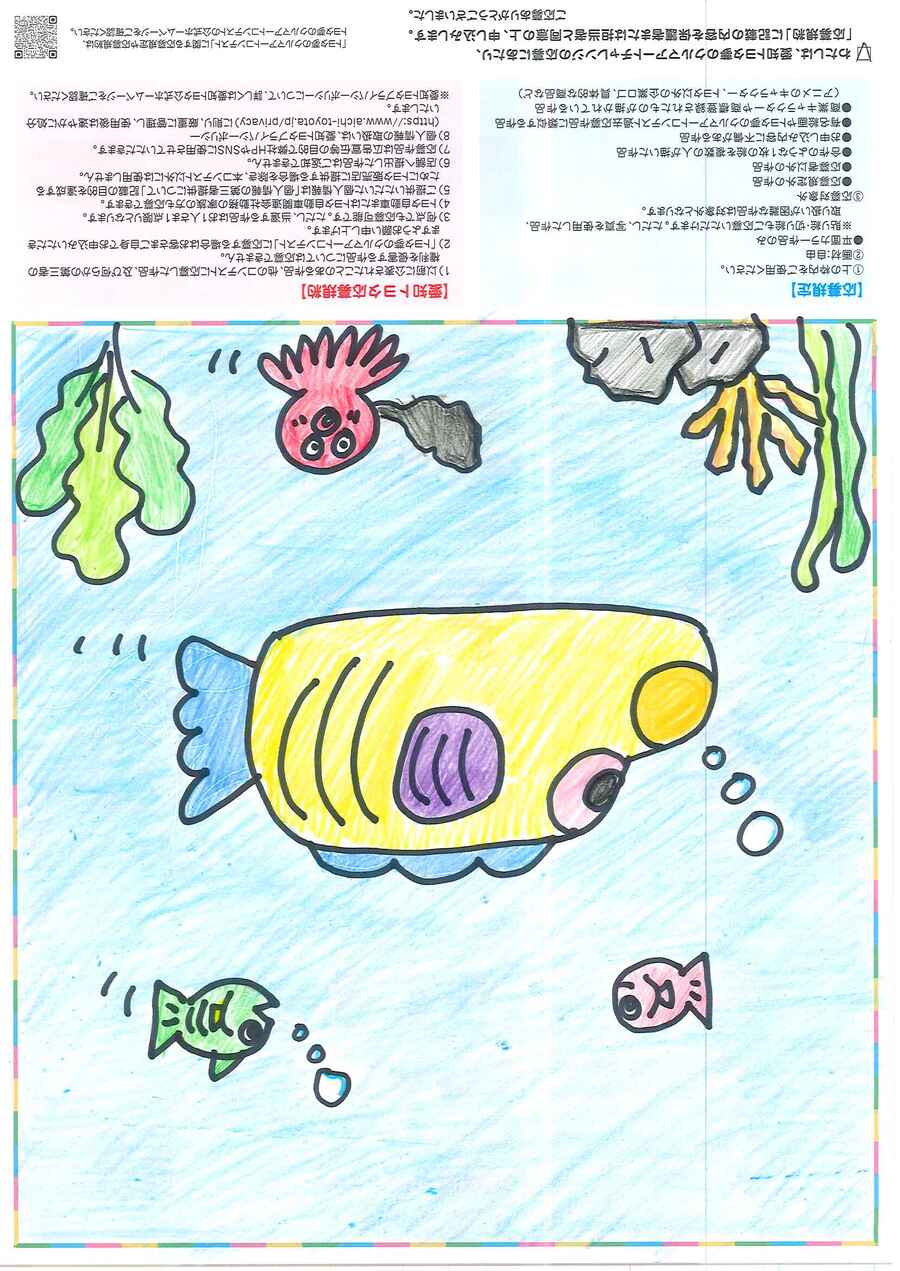 【応募規定】
①上の枠内をご使用ください。
②画材：自由
●平面カラー作品のみ
※貼り絵・切り絵もご応募いただけます。ただし、写真を使用した作品、
取り扱いが困難な作品は対象外となります。
③応募対象外
●応募規定外の作品
●応募者以外の作品
●合作のような1枚の絵を複数の人が描いた作品
●お申込み内容に不備がある作品
●有名絵画やトヨタ夢のクルマアートコンテスト過去応募作品に類似する作品
●商業キャラクターや商標登録されたものが描かれている作品
（アニメのキャラクター、トヨタ以外の企業ロゴ、具体的な商品など）
【愛知トヨタ応募規約】
1）以前に公表されたことのある作品、他のコンテストに応募した作品、及び何らかの第三者の
権利を侵害する作品については応募できません。
2）「トヨタ夢のクルマアートコンテスト」に応募する場合はお客さまご自身でお申込みいただき
ますようお願い申し上げます。
3）何点でも応募可能です。ただし、当選する作品はお1人さま1点限りとなります。
4）トヨタ自動車またはトヨタ自動車関連会社勤務の家族の方も応募できます。
5）ご提出いただいた個人情報は「個人情報の第三者提供について」記載の目的を達成する
ためにトヨタ販売店に提供する場合を除き、本コンテスト以外には使用しません。
6）店頭へ提出した作品はご返却できません。
7）応募作品は広告宣伝等の目的で弊社HPやSNSに使用させていただきます。
8）個人情報の取扱いは、愛知トヨタプライバシーポリシー
（https://www.aichi-toyota.jp/privacy）に則り、厳重に管理し、使用後は速やかに処分
いたします。
※愛知トヨタプライバシーポリシーについて、詳しくは愛知トヨタ公式ホームページをご確認ください。
わたしは、愛知トヨタ夢のクルマアートチャレンジへの応募にあたり、
「応募規約」に記載の内容を保護者または担当者と同意の上、申し込みます。
ご応募ありがとうございました。
「トヨタ夢のクルマアートコンテスト」に関する応募規定や応募規約は、
トヨタ夢のクルマアートコンテストの公式ホームページをご確認ください。